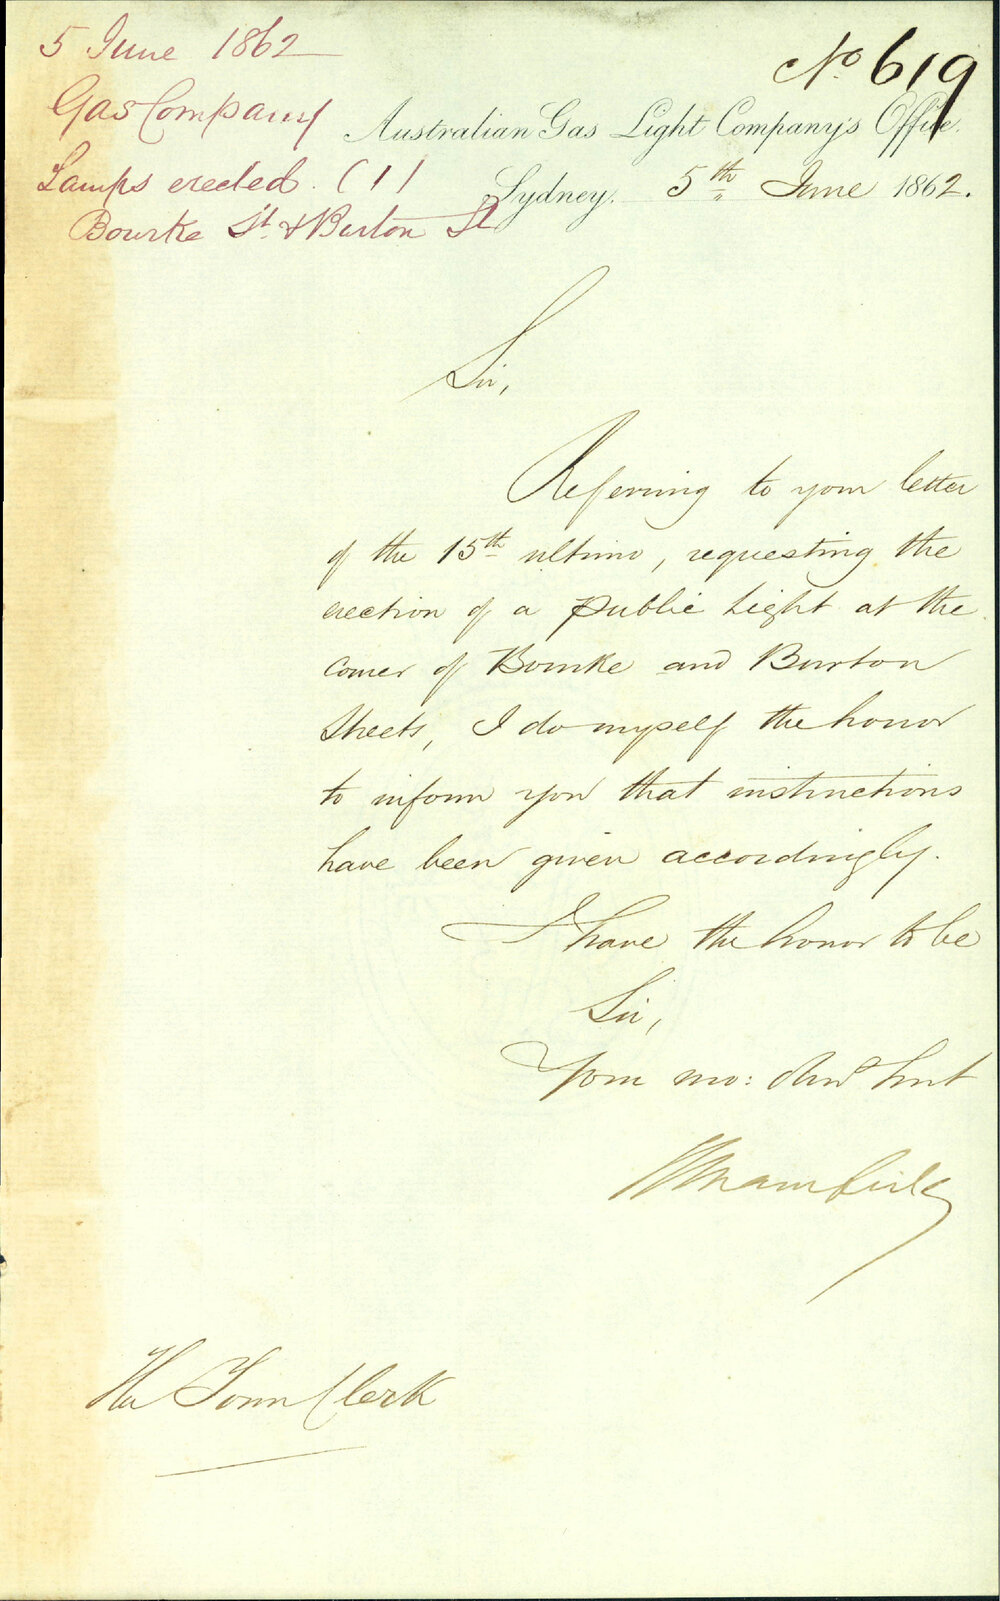 5 June 1862
Gas Company
Lamps erected. (1)
Bourke St & Burton St
No 619
Australian Gas Light Company's Office.
Sydney, 5th June 1862.
Sir,
Referring to your letter
of the 15th ultimo, requesting the
erection of a Public Light at the
corner of Bourke and Burton
Streets, I do myself the honor
to inform you that instructions
have been given accordingly.
I have the honor to be
Sir,
Your mo: Obt Srvt
The Town Clerk